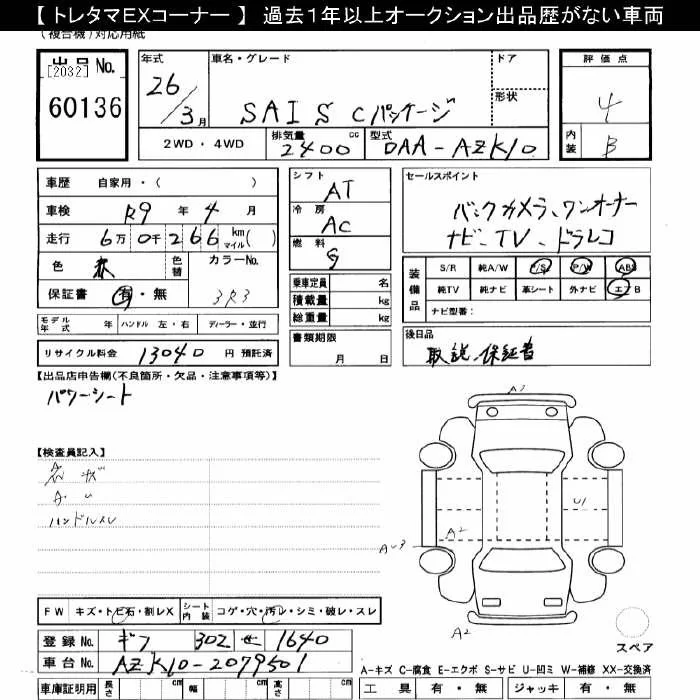 【 トレタマEXコーナー 】 過去1年以上オークション出品歴がない車両
(複合機)対応用紙
出品No.
[2032]
60136
年式
26/3月
車名・グレード
SAI S Cパッケージ
ドア
形状
評価点
4
内装
B
2WD・4WD
排気量
2400
cc
型式
DAA-AZK10
車歴
自家用・( )
車検
R9年4月
走行
6万0千266
km
マイル
( )
色
赤
色替
カラーNo.
3R3
保証書
有・無
シフト
AT
冷房
AC
燃料
G
乗車定員
名
積載量
kg
総重量
kg
セールスポイント
バックカメラ、ワンオーナー
ナビ、TV、ドラレコ
装備品
S/R 純A/W P/S P/W ABS
純TV 純ナビ 革シート 外ナビ エアB
ナビ型番:
モデル年式
年
ハンドル 左・右
ディーラー・並行
リサイクル料金
13040
円 預託済
書類期限
月 日
後日品
取説、保証書
【出品店申告欄(不良箇所・欠品・注意事項等)】
パワーシート
【検査員記入】
ハンドルスレ
A2
U1
A2
FW
キズ・トビ石・割レX
シート内装
コゲ・穴・汚レ・シミ・破レ・スレ
登録No.
ギフ 302 せ 1640
車台No.
AZK10-2079501
スペア
A-キズ C-腐食 E-エクボ S-サビ U-凹ミ W-補修 XX-交換済
車庫証明用
長さ
cm
幅
cm
高さ
cm
工具
有・無
ジャッキ
有・無